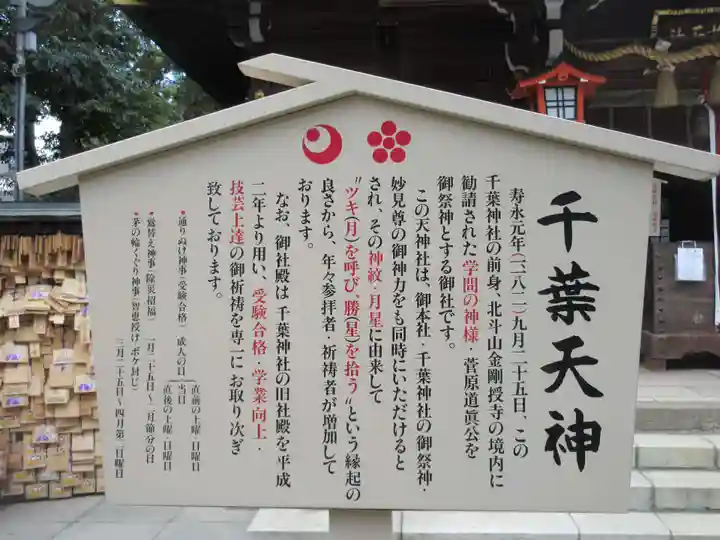 千葉天神
寿永元年(一一八二)九月二十五日、この
千葉神社の前身、北斗山金剛授寺の境内に
勧請された学問の神様・菅原道眞公を
御祭神とする御社です。
この天神社は、御本社・千葉神社の御祭神・
妙見尊の御神力をも同時にいただけると
され、その神紋・月星に由来して
“ツキ(月)を呼び、勝(星)を拾う”という縁起の
良さから、年々参拝者・祈祷者が増加して
おります。
なお、御社殿は千葉神社の旧社殿を平成
二年より用い、受験合格・学業向上・
技芸上達の御祈祷を専一にお取り次ぎ
致しております。
●通りぬけ神事(受験合格) 成人の日
直前の土曜・日曜日
当日
直後の土曜・日曜日
●鷽替え神事(除災招福) 一月二十五日〜二月節分の日
●茅の輪くぐり神事(智恵授け・ボケ封じ)
三月二十五日〜四月第二日曜日